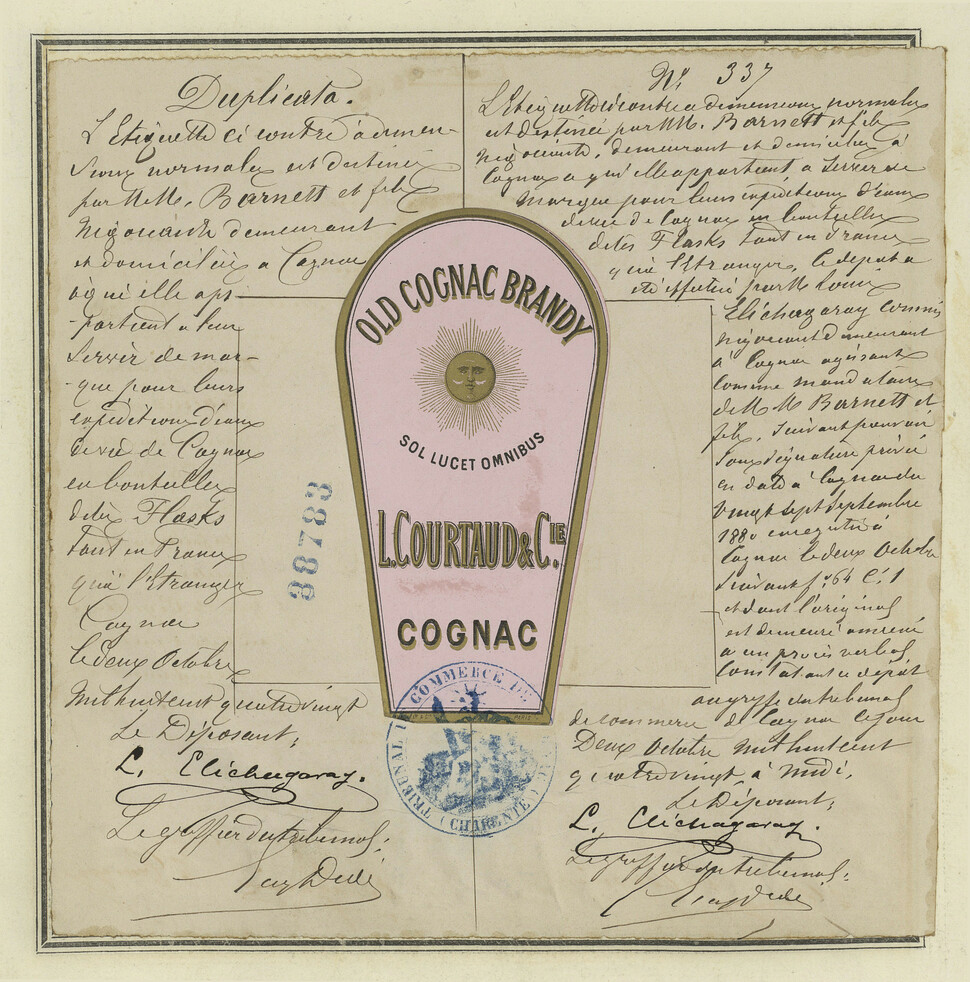 Duplicata.
L'Etiquette ci contre à dimen-
sions normales est destinée
par MM. Barnett et fils
Négociants demeurant
et domiciliés a Cognac
à qui elle ap-
-partient a leur
servir de mar-
-que pour leurs
expéditions d'eaux
de vie de Cognac
en bouteilles
dites Flasks
tant en France
qu'à l'Etranger
Cognac
le deux Octobre
mil huit cent quatre vingt
Le Déposant,
L. Elichagaray.
Le greffier du tribunal,
No 337
L'Etiquette ci contre a dimensions normales
est destinée par MM. Barnett et fils
négociants, demeurant et domiciliés à
Cognac a qui elle appartient a servir de
Marque pour leurs expéditions d'eaux
de vie de Cognac en bouteilles
dites Flasks tant en France
qu'à l'Etranger, le dépot a
été effectué par M. Louis
Elichagaray commis
négociant demeurant
à Cognac agissant
comme mandataire
de MM Barnett et
fils, suivant pouvoir
sous signature privée
en date à Cognac du
vingt sept Septembre
1880 enregistré à
Cognac le deux Octobre
suivant fo 64 C. 1
et dont l'original
est demeuré annexé
a un procès verbal
constatant ce dépôt
au greffe du tribunal
de commerce de Cognac ce jour
Deux Octobre mil huit cent
quatre vingt, à midi.
Le Déposant,
L. Elichagaray.
Le greffier du tribunal,
OLD COGNAC BRANDY
SOL LUCET OMNIBUS
L. COURTAUD & CIE
COGNAC
38783
TRIBUNAL DE COMMERCE DE COGNAC
(CHARENTE)